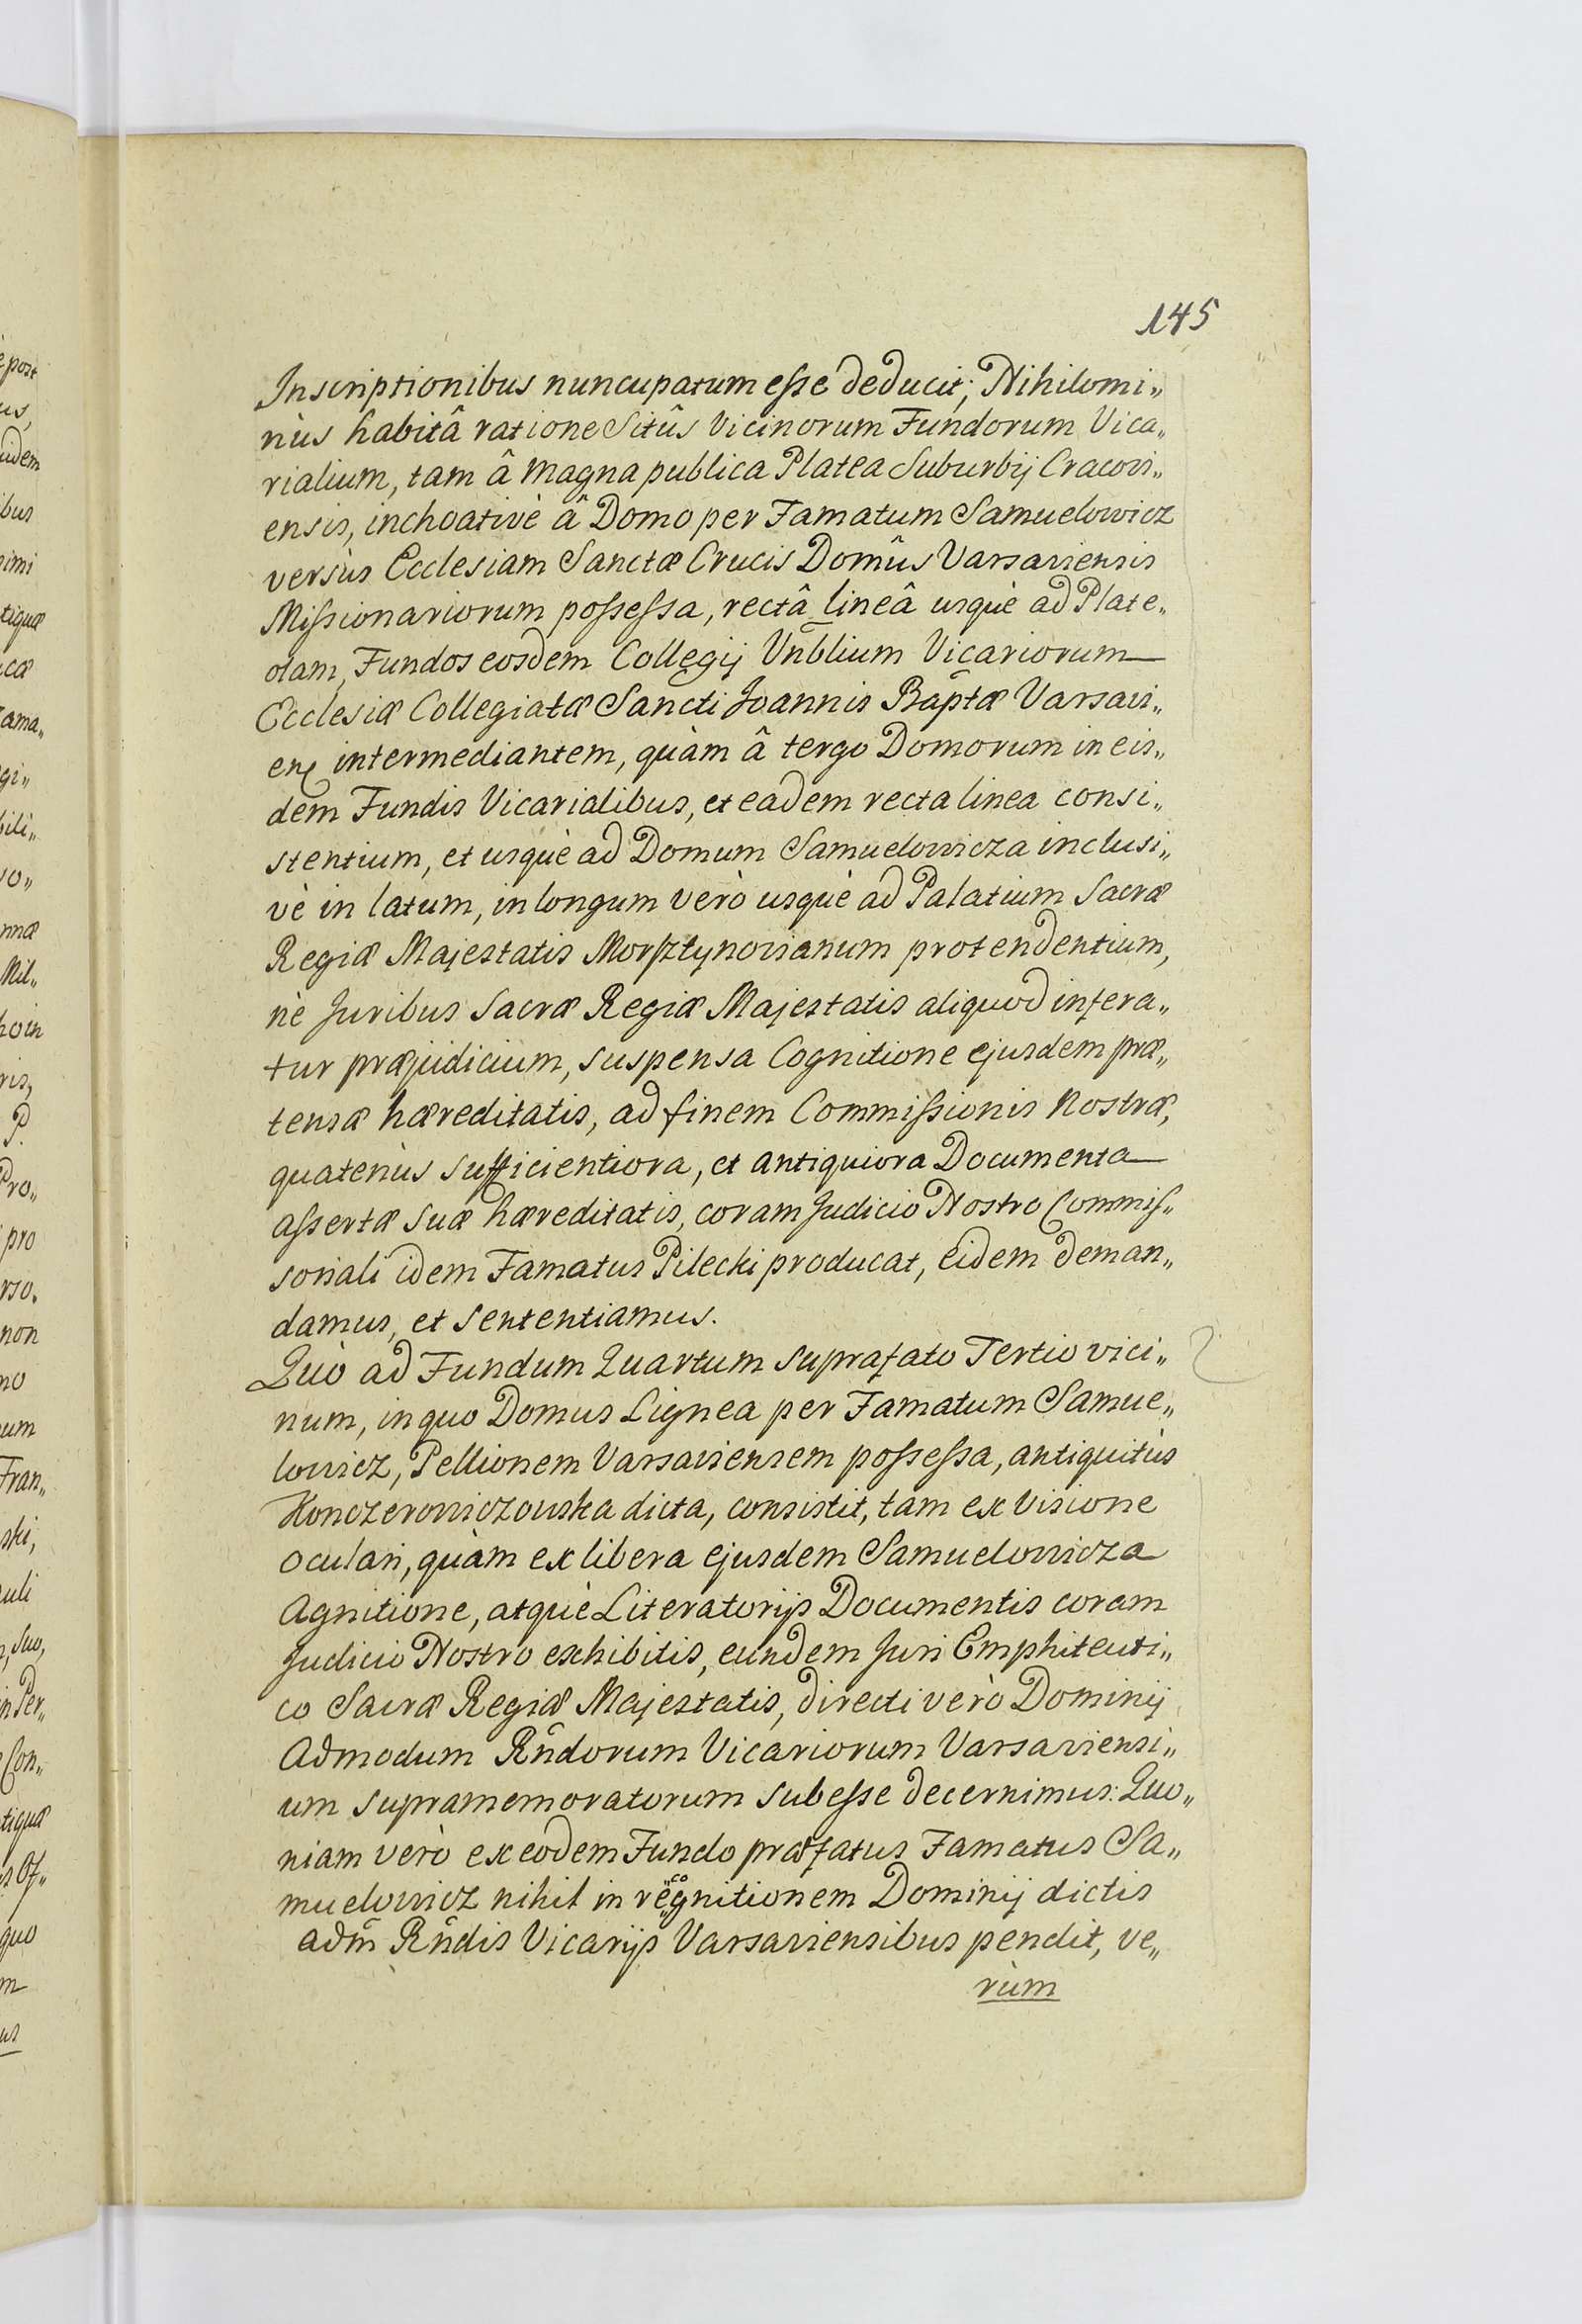 145
Inscriptionibus nuncupatum eſse deducit; Nihilomi„
nùs habitâ ratione Sitûs Vicinorum Fundorum Vica„
rialium, tam â magna publica Platea Suburbij Cracovi„
ensis, inchoativè â Domo per Famatum Samuelowicz
versùs Ecclesiam Sanctæ Crucis Domûs Varsaviensis
Miſsionariorum poſseſsa, rectâ lineâ usquè ad Plate„
olam, Fundos eosdem Collegij Vn̄blium Vicariorum
Ecclesiæ Collegiatæ Sancti Joannis Bap̄tæ Varsavi„
en̨ intermediantem, quàm â tergo Domorum in eis„
dem Fundis Vicarialibus, et eadem recta linea consi„
stentium, et usquè ad Domum Samuelowicza inclusi„
vè in latum, in longum verò usquè ad Palatium Sacræ
Regiæ Majestatis Morſztynovianum protendentium,
nè Juribus Sacræ Regiæ Majestatis aliquod infera„
tur præjudicium, suspensa Cognitione ejusdem præ„
tensæ hæreditatis, ad finem Commiſsionis Nostræ,
quatenùs sufficientiora, et antiquiora Documenta
aſsertæ suæ hæreditatis, coram Judicio Nostro Commiſ„
soriali idem Famatus Pilecki producat, eidem deman„
damus, et sententiamus.
Quò ad Fundum Quartum suprafato Tertio vici„
num, in quo Domus Lignea per Famatum Samue„
lowicz, Pellionem Varsaviensem poſseſsa, antiquitùs
Konczerowiczowska dicta, consistit, tam ex visione
oculari, quàm ex libera ejusdem Samuelowicza
Agnitione, atquè Literatorijs Documentis coram
Judicio Nostro exhibitis, eundem Juri Emphiteuti„
co Sacræ Regiæ Majestatis, directi verò Dominij
Admodum Rn̂dorum Vicariorum Varsaviensi„
um supramemoratorum subeſse decernimus: Quo„
niam verò ex eodem Fundo præfatus Famatus Sa„
muelowicz nihil in recognitionem Dominij dictis
adm̂ Rn̂dis Vicarijs Varsaviensibus pendit, ve„
rùm